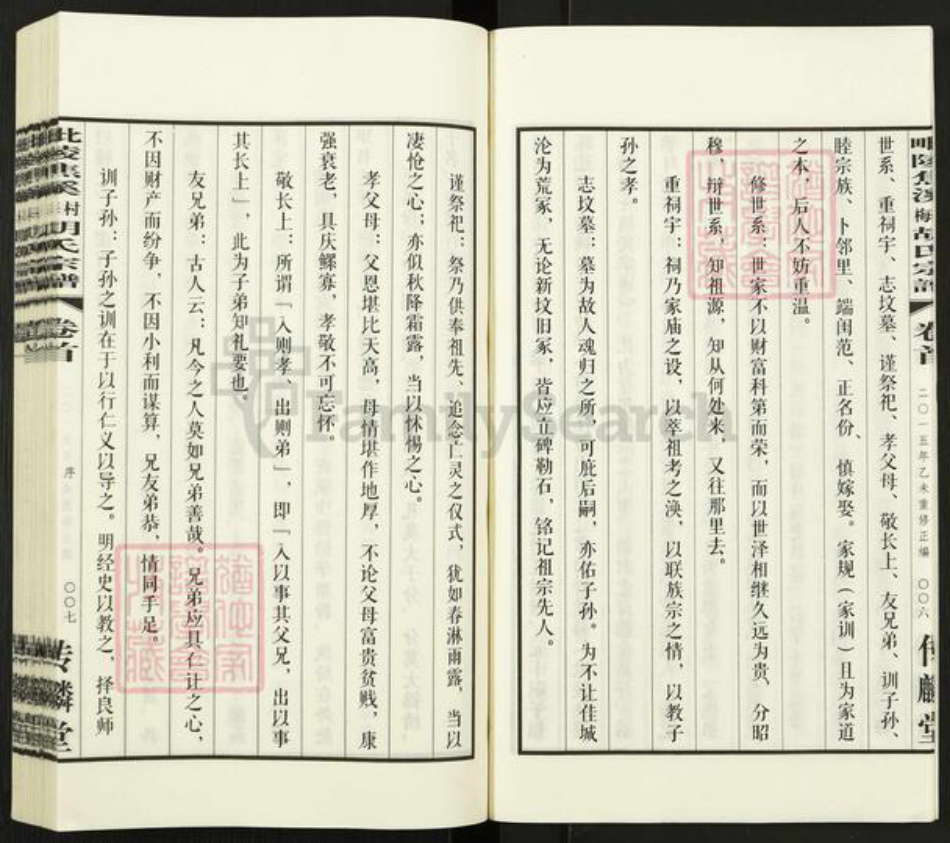 毗陵焦溪梅村胡氏宗谱
卷首
二〇一五年乙未重修正编
〇〇六
传麟堂
世系、重祠宇、志坟墓、谨祭祀、孝父母、敬长上、友兄弟、训子孙、
睦宗族、卜邻里、端闺范、正名份、慎嫁娶。家规（家训）且为家道
之本，后人不妨重温。
修世系：世家不以财富科第而荣，而以世泽相继久远为贵，分昭
穆，辩世系，知祖源，知从何处来，又往那里去。
重祠宇：祠乃家庙之设，以萃祖考之涣，以联族宗之情，以教子
孙之孝。
志坟墓：墓为故人魂归之所，可庇后嗣，亦佑子孙。为不让佳城
沦为荒冢，无论新坟旧冢，皆应立碑勒石，铭记祖宗先人。
谨祭祀：祭乃供奉祖先、追念亡灵之仪式，犹如春淋雨露，当以
凄怆之心；亦似秋降霜露，当以怵惕之心。
孝父母：父恩堪比天高，母情堪作地厚，不论父母富贵贫贱，康
强衰老，具庆鳏寡，孝敬不可忘怀。
敬长上：所谓「入则孝、出则弟」，即「入以事其父兄，出以事
其长上」，此为子弟知礼要也。
友兄弟：古人云：凡今之人莫如兄弟善哉。兄弟应具仁让之心，
不因财产而纷争，不因小利而谋算，兄友弟恭，情同手足。
训子孙：子孙之训在于以行仁义以导之。明经史以教之，择良师
毗陵焦溪梅村胡氏宗谱
卷首
序
〇〇七
传麟堂
FamilySearch